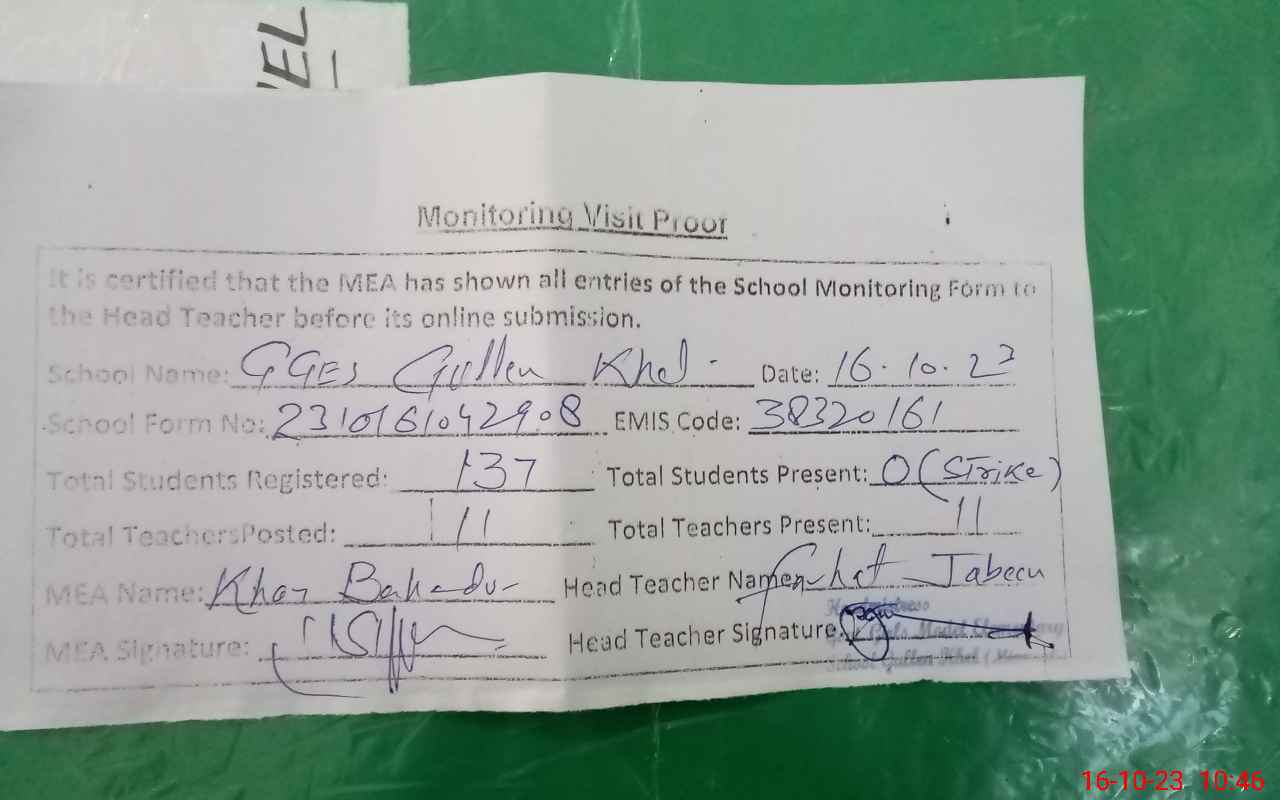 VEL
Monitoring Visit Proof
It is certified that the MEA has shown all entries of the School Monitoring Form to
the Head Teacher before its online submission.
School Name: GGES Gullen Khel Date: 16.10.23
School Form No: EMIS Code: 38320161
Total Students Registered: 137 Total Students Present: 0 (Strike)
Total TeachersPosted: 11 Total Teachers Present: 11
MEA Name: Khan Bahadur Head Teacher Name: Jabeen
MEA Signature: Head Teacher Signature:
Headmistress
Girls Model Elementary
School Gullen Khel
16-10-23 10:46